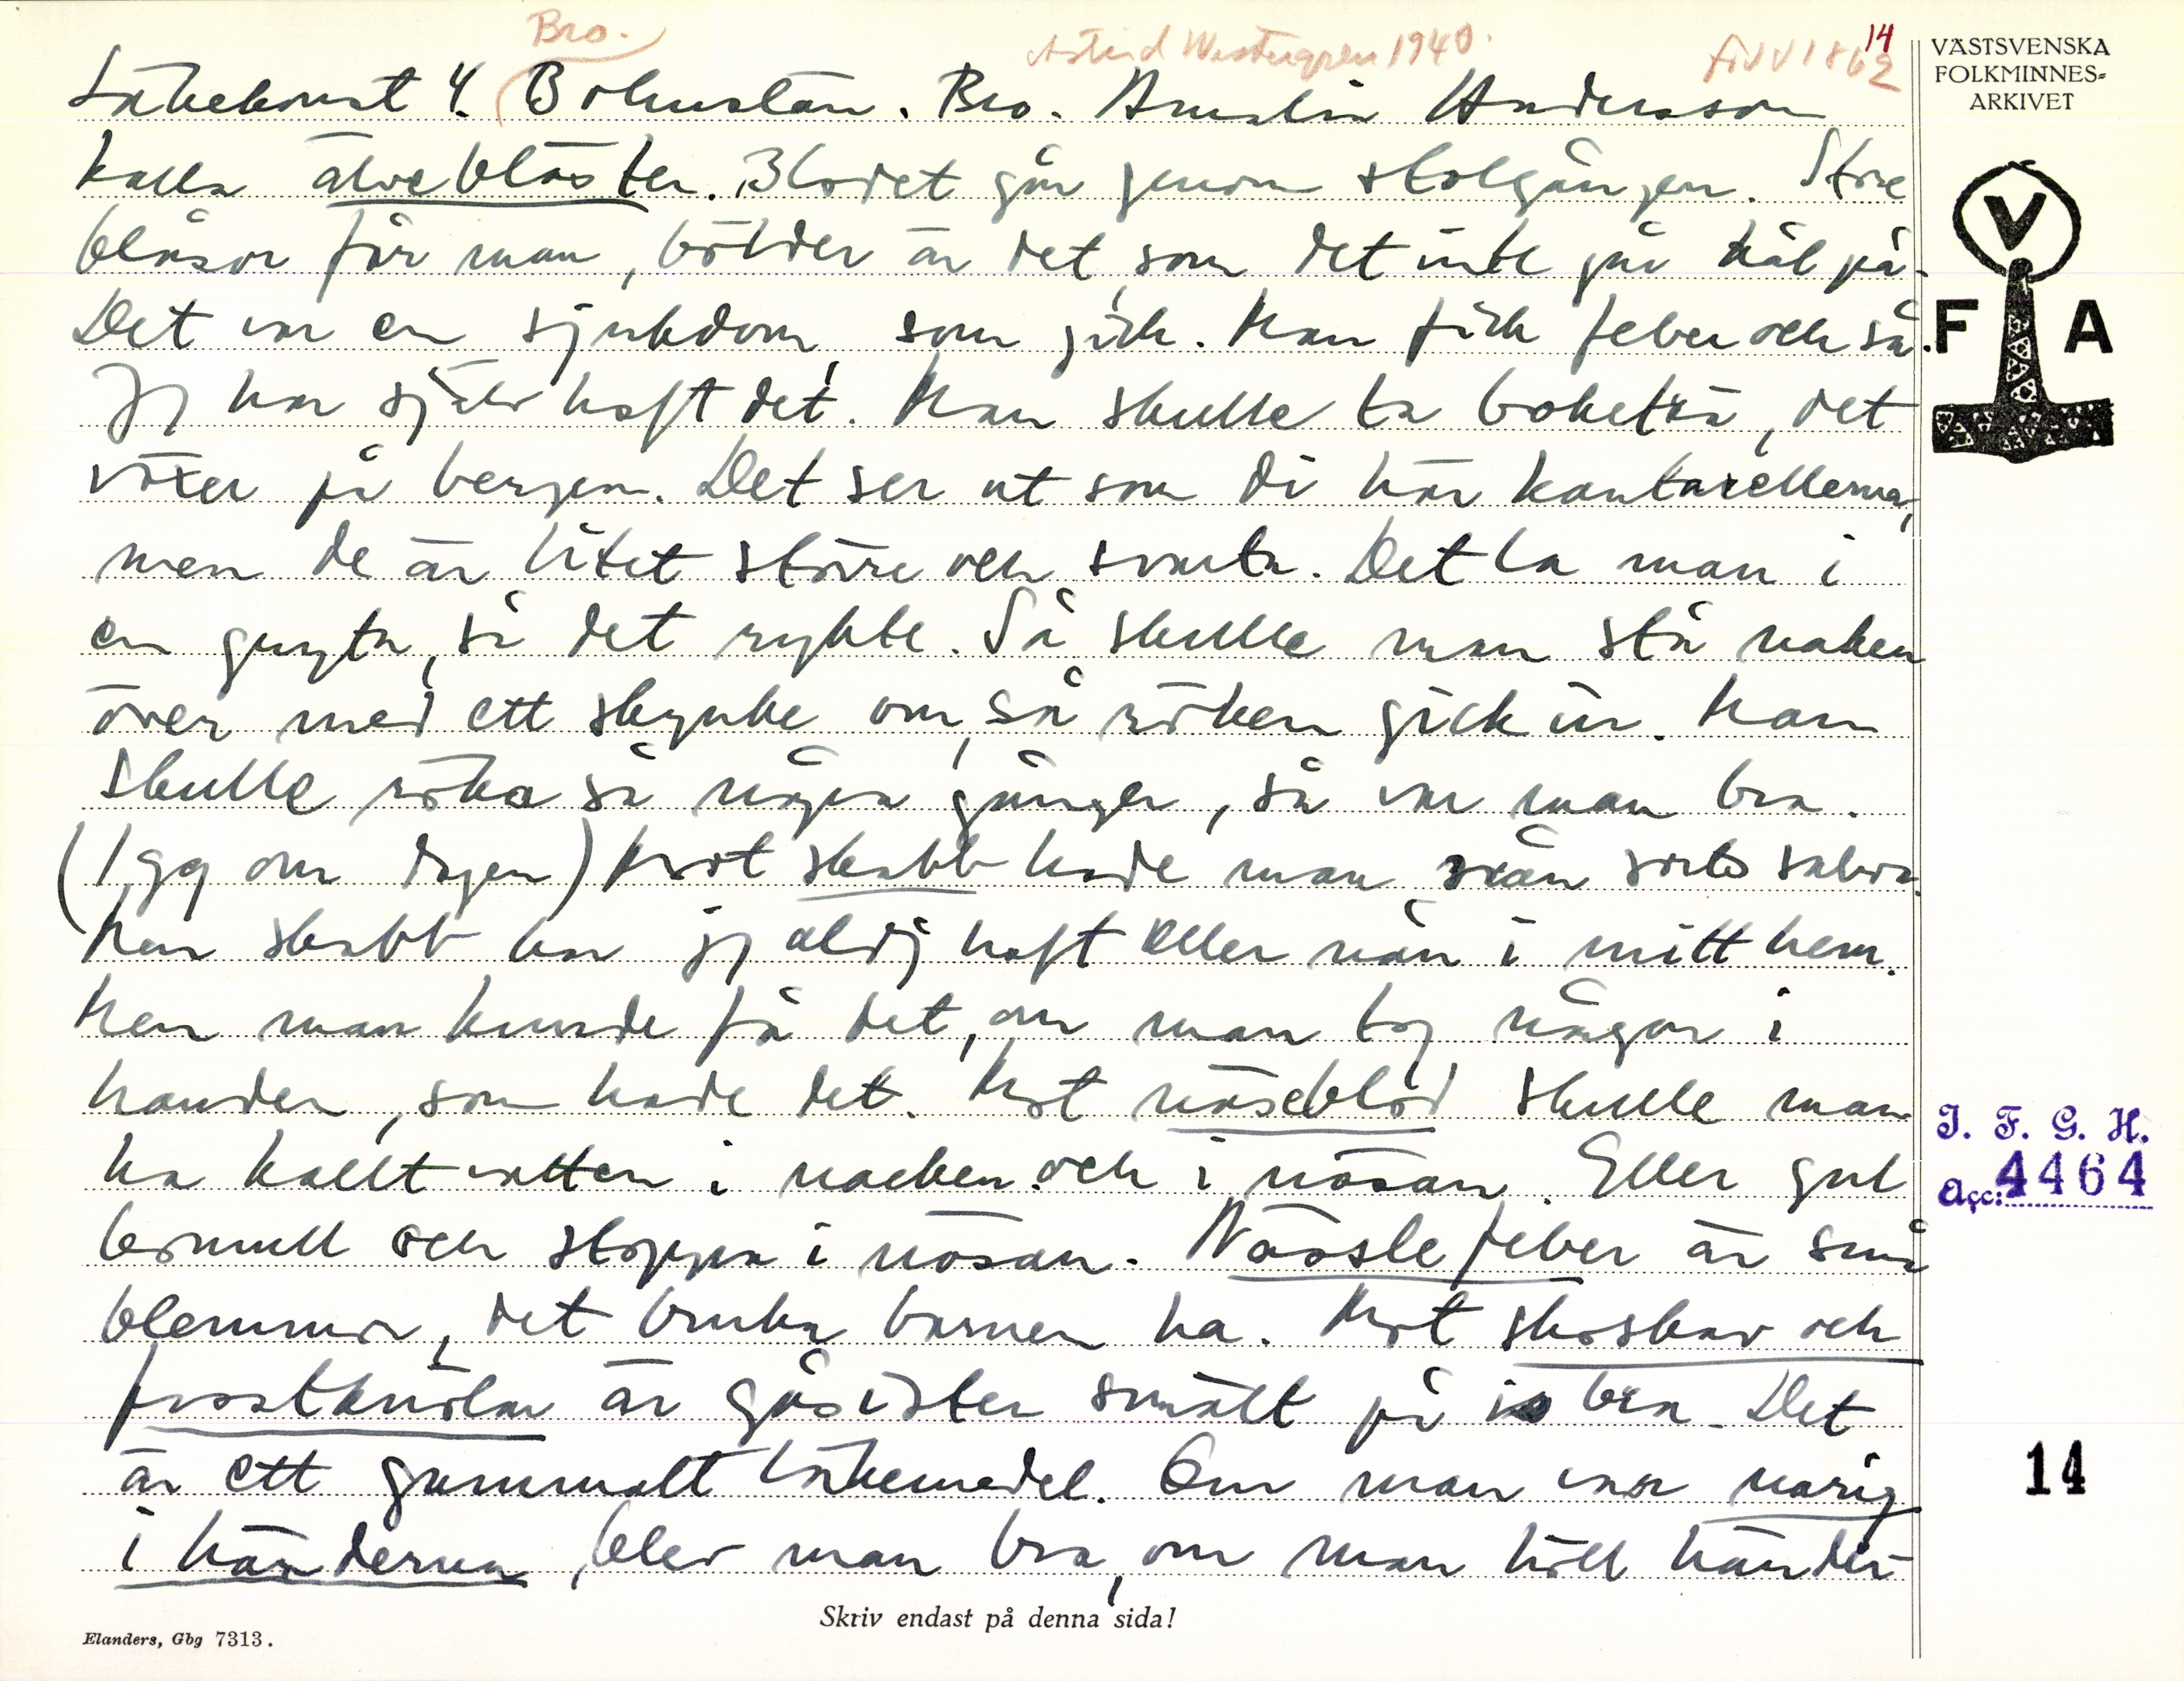 Bro.
Astrid Westergren 1940.
född 1862
14
Läkekonst 4. Bohuslän. Bro. Amalia Andersson
kalla älvebläster. Blodet går genom stolgången. Stora
blåsor får man, bölder är det, som det inte går hål på.
Det var en sjukdom, som gick. Man fick feber och så.
Jg har själv haft det. Man skulle ta boketrä, det
växer på bergen. Det ser ut som di här kantarellerna,
men de är litet större och svarta. Det la man i
en gryta, så det rykte. Så skulle man stå naken
över med ett skynke om, så röken gick in. Man
skulle röka så några gånger, så var man bra.
(1 gg om dagen) Mot skabb hade man nån sorts salva.
Men skabb har jg aldrj haft eller nån i mitt hem.
Men man kunde få det, om man tog någon i
handen, som hade det. Mot näseblod skulle man
ha kallt vatten i nacken och i näsan. Eller gul
bomull och stoppa i näsan. Nässlefeber är små
blemmor, det bruka barnen ha. Mot skoskav och
frostknölar är gåsister smält på is bra. Det
är ett gammalt läkemedel. Om man var narig
i händerna, blev man bra, om man höll händer-
VÄSTSVENSKA
FOLKMINNES-
ARKIVET
V
F A
I. F. G. H.
Acc: 4464
14
Skriv endast på denna sida!
Elanders, Gbg 7313.